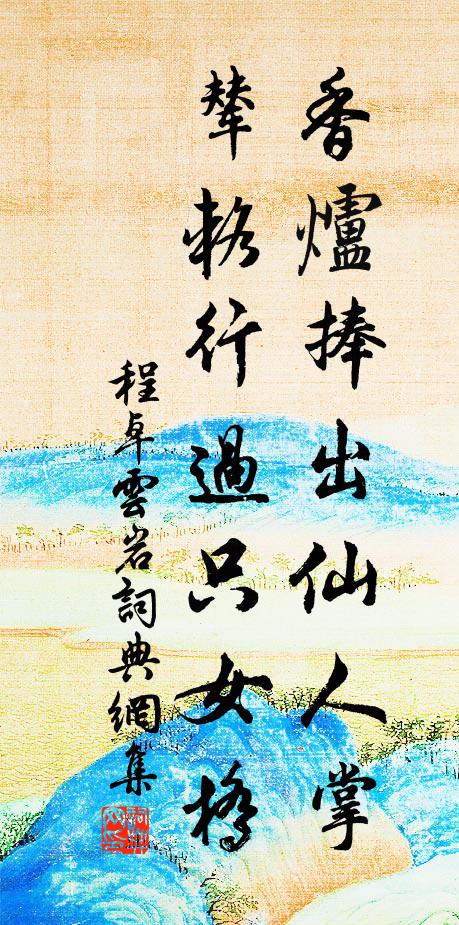 香爐捧出仙人掌
輦輅行過只女橋
程卓雲岩詞典網集